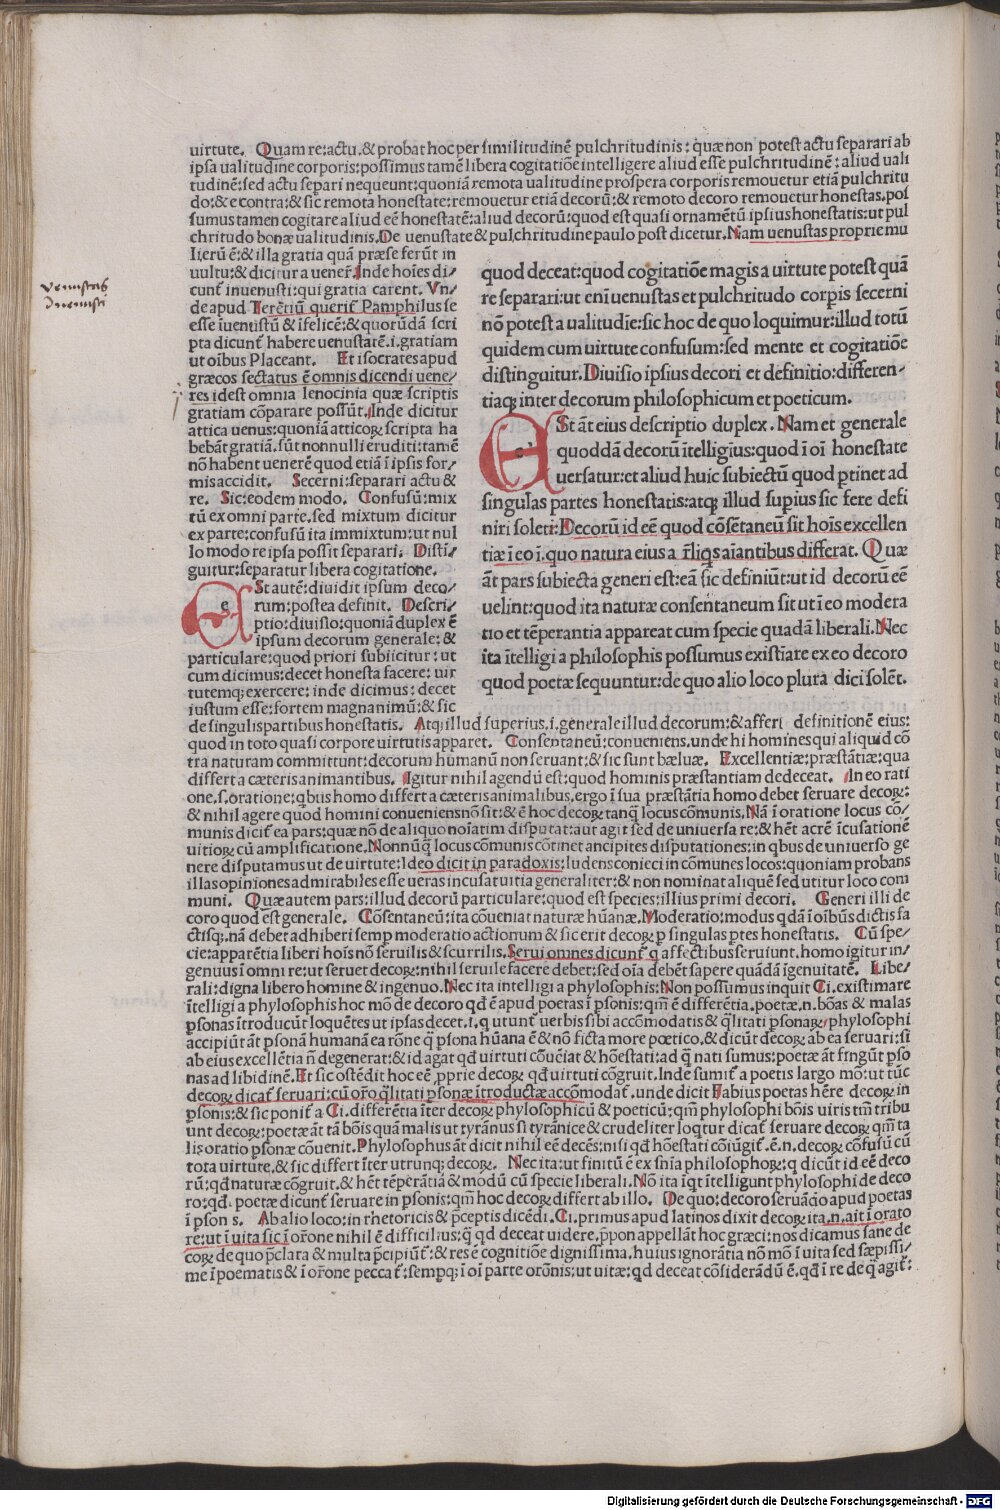 uirtute. Quam re:actu.& probat hoc per similitudinē pulchritudinis: quæ non potest actu separari ab
ipsa ualitudine corporis:possimus tamē libera cogitatiōe intelligere aliud esse pulchritudinē: aliud uali
tudinē:sed actu separi nequeunt:quoniā remota ualitudine prospera corporis remouetur etiā pulchritu
do:& e contra:& sic remota honestate:remouetur etiā decorū:& remoto decoro remouetur honestas.pos
sumus tamen cogitare aliud eē honestatē:aliud decorū:quod est quasi ornamētū ipsius honestatis:ut pul
chritudo bonæ ualitudinis.De uenustate & pulchritudine paulo post dicetur.Nam uenustas proprie mu
lierū ē:& illa gratia quā præse ferūt in
uultu:& dicitur a uener̄.Inde hoīes di/
cunt̄ inuenusti:qui gratia carent. Vn/
de apud Terētiū querit̄ Pamphilus se
esse īuentistū & īfelicē:& quorūdā scri
pta dicunt̄ habere uenustatē.i.gratiam
ut oībus Placeant. Et isocrates apud
græcos sectatus ē omnis dicendi uene/
res idest omnia lenocinia quæ scriptis
gratiam cōparare possūt.Inde dicitur
attica uenus:quoniā atticoꝝ scripta ha
bebāt gratiā.sūt nonnulli eruditi:tamē
nō habent uenerē quod etiā ī ipsis for/
mis accidit. Secerni:separari actu &
re. Sic:eodem modo. Confusū:mix
tū ex omni parte.sed mixtum dicitur
ex parte:confusū ita immixtum:ut nul
lo modo re ipsa possit separari. Distī/
guitur:separatur libera cogitatione.
eSt autē:diuidit ipsum deco/
rum:postea definit. Descri/
ptio:diuisio:quoniā duplex ē
ipsum decorum generale:&
particulare:quod priori subiicitur: ut
cum dicimus:decet honesta facere: uir
tutemq; exercere: inde dicimus: decet
iustum esse:fortem magnanimū:& sic
quod deceat:quod cogitatiōe magis a uirtute potest quā
re separari:ut enī uenustas et pulchritudo corpis secerni
nō potest a ualitudie:sic hoc de quo loquimur:illud totū
quidem cum uirtute confusum:sed mente et cogitatiōe
distinguitur.Diuisio ipsius decori et definitio:differen-
tiaq; inter decorum philosophicum et poeticum.
ESt āt eius descriptio duplex. Nam et generale
quoddā decorū ītelligīus:quod ī oī honestate
uersatur:et aliud huic subiectū quod ptinet ad
singulas partes honestatis:atq; illud supius sic fere defi
niri solet:Decorū id eē quod cōsētaneū sit hoīs excellen
tiæ ī eo ī.quo natura eius a r̄liqs aīantibus differat. Quæ
āt pars subiecta generi est:eā sic definiūt:ut id decorū eē
uelint:quod ita naturæ consentaneum sit ut ī eo modera
tio et tēperantia appareat cum specie quadā liberali.Nec
ita ītelligi a philosophis possumus existiare ex eo decoro
quod poetæ sequuntur:de quo alio loco plura dici solēt.
de singulis partibus honestatis. Atq; illud superius.i.generale illud decorum:& afferi definitionē eius:
quod in toto quasi corpore uirtutis apparet. Consentaneū:conueniens.unde hi homines qui aliquid cō
tra naturam committunt:decorum humanū non seruant:& sic sunt bæluæ. Excellentiæ:præstātiæ:qua
differt a cæteris animantibus. Igitur nihil agendū est:quod hominis præstantiam dedeceat. In eo rati
one.s.oratione:qbus homo differt a cæteris animalibus.ergo ī sua præstātia homo debet seruare decoꝝ:
& nihil agere quod homini conueniens nō sit:& ē hoc decoꝝ tanq̄ locus cōmunis.Nā ī oratione locus cō/
munis dicit̄ ea pars:quæ nō de aliquo noīatim disputat:aut agit sed de uniuersa re:& hēt acrē īcusationē
uitioꝝ cū amplificatione.Nonnūq̄ locus cōmunis cōtinet ancipites disputationes:in qbus de uniuerso ge
nere disputamus ut de uirtute:Ideo dicit in paradoxis:ludens conieci in cōmunes locos:quoniam probans
illas opiniones admirabiles esse ueras incusat uitia generaliter:& non nominat aliquē sed utitur loco com
muni. Quæ autem pars:illud decorū particulare:quod est species:illius primi decori. Generi illi de
coro quod est generale. Cōsentaneū:ita cōueniat naturæ hūanæ.Moderatio:modus qdā ī oībus dictis fa
ctisq;.nā debet adhiberi semp moderatio actionum & sic erit decoꝝ p singulas ptes honestatis. Cū spe/
cie:apparētia liberi hoīs nō seruilis & scurrilis.Serui omnes dicunt̄ q affectibus seruiunt.homo igitur in/
genuus ī omni re:ut seruet decoꝝ:nihil seruile facere debet:sed oīa debēt sapere quādā īgenuitatē. Libe/
rali:digna libero homine & ingenuo.Nec ita intelligi a phylosophis:Non possumus inquit Ci.existimare
ītelligi a phylosophis hoc mō de decoro qđ ē apud poetas ī psonis:qm̄ ē differētia.poetæ.n.bōas & malas
psonas ītroducūt loquētes ut ipsas decet.i.q utunt̄ uerbis sibi accōmodatis & q̄litati psonaꝝ.phylosophi
accipiūt āt psonā humanā ea rōne q̄ psona hūana ē & nō ficta more poetico.& dicūt decoꝝ ab ea seruari:si
ab eius excellētia n̄ degenerat:& id agat qđ uirtuti cōuēiat & hōestati:ad q̄ nati sumus:poetæ āt fingūt pso
nas ad libidinē.Et sic ostēdit hoc eē pprie decoꝝ qđ uirtuti cōgruit.Inde sumit̄ a poetis largo mō:ut tūc
decoꝝ dicat̄ seruari:cū or̄o q̄litati psonæ ītroductæ accōmodat̄.unde dicit Fabius poetas hēre decoꝝ in
psonis:& sic ponit̄ a Ci.differētia īter decoꝝ phylosophicū & poeticū:qm̄ phylosophi bōis uiris tm̄ tribu
unt decoꝝ:poetæ āt tā bōis quā malis ut tyrānus si tyrānice & crudeliter loqtur dicat̄ seruare decoꝝ qm̄ ta
lis oratio psonæ cōuenit.Phylosophus āt dicit nihil eē decēs:nisi qđ hōestati cōiūgit̄.ē.n.decoꝝ cōfusū cū
tota uirtute.& sic differt īter utrunq; decoꝝ. Nec ita:ut finitū ē ex snīa philosophoꝝ:q dicūt id eē deco
rū:qđ naturæ cōgruit.& hēt tēperātiā & modū cū specie liberali.Nō ita īqt ītelligunt phylosophi de deco
ro:qđ. poetæ dicunt̄ seruare in psonis:qm̄ hoc decoꝝ differt ab illo. De quo:decoro seruādo apud poetas
ī pson s. Ab alio loco:in rhetoricis & p̄ceptis dicēdi.Ci.primus apud latinos dixit decoꝝ:ita.n.ait ī orato
re:ut ī uita sic ī or̄one nihil ē difficilius:q̄ qd deceat uidere.p̄pon appellāt hoc græci:nos dicamus sane de
coꝝ de quo p̄clara & multa p̄cipiūt̄:& res ē cognitiōe dignissima.huius ignorātia nō mō ī uita sed sæpissi/
me ī poematis & ī or̄one peccat̄:sempq; ī oī parte orōnis:ut uitæ:qd deceat cōsiderādū ē.qđ ī re de q̄ agit̄:
venustas
Inuenusti
Digitalisierung gefördert durch die Deutsche Forschungsgemeinschaft - DFG